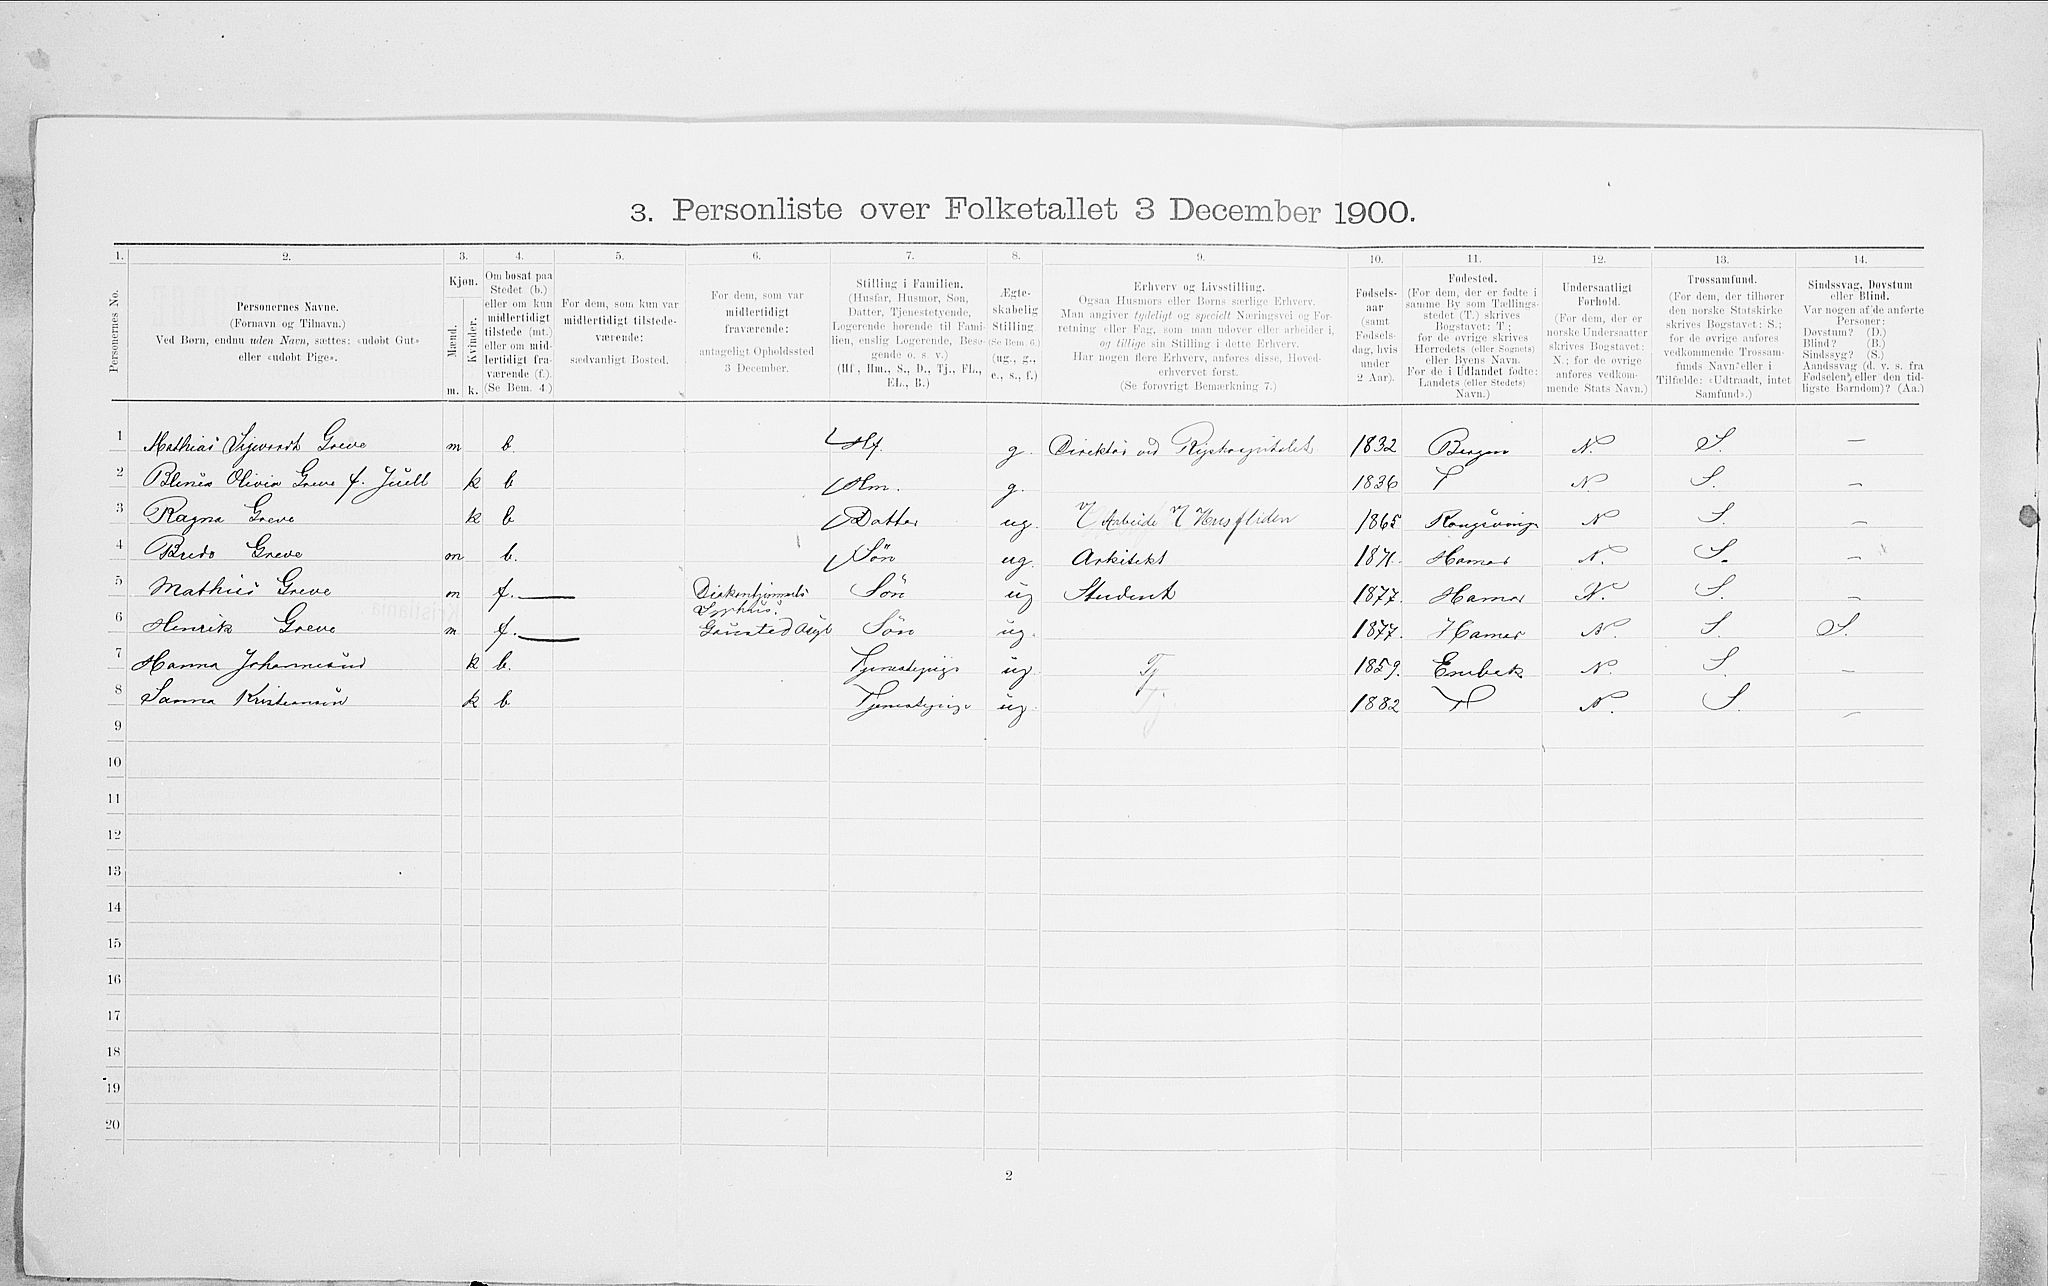 3. Personliste over Folketallet 3 December 1900.
1. 2. 3. 4. 5. 6. 7. 8. 9. 10. 11. 12. 13. 14.
Personernes No.
Personernes Navne.
(Fornavn og Tilnavn.)
Ved Børn, endnu uden Navn, sættes: «udøbt Gut»
eller «udøbt Pige».
Kjøn.
Mænd.
Kvinder.
m. k.
Om bosat paa
Stedet (b.)
eller om kun
midlertidigt
tilstede (mt.)
eller om mid-
lertidigt fra-
værende (f.).
(Se Bem. 4.)
For dem, som kun var
midlertidigt tilstede-
værende:
sædvanligt Bosted.
For dem, som var
midlertidigt
fraværende:
antageligt Opholdssted
3 December.
Stilling i Familien.
(Husfar, Husmor, Søn,
Datter, Tjenestetyende,
Logerende hørende til Fami-
lien, enslig Logerende, Besø-
gende o. s. v.)
(Hf., Hm., S., D., Tj., FL.,
EL., B.)
Ægte-
skabelig
Stilling
(Se Bem. 6.)
(ug., g.,
e., s., f.)
Erhverv og Livsstilling.
Ogsaa Husmors eller Børns særlige Erhverv.
Man angiver tydeligt og specielt Næringsvei og For-
retning eller Fag, som man udøver eller arbeider i,
og tillige sin Stilling i dette Erhverv.
Har nogen flere Erhverv, anføres disse, Hoved-
erhvervet først.
(Se forøvrigt Bemærkning 7.)
Fødsels-
aar
(samt
Fødsels-
dag, hvis
under
2 Aar).
Fødested.
(For dem, der er fødte i
samme By som Tællings-
stedet (T.) skrives
Bogstavet: T ;
for de øvrige skrives
Herredets (eller Sognets)
eller Byens Navn.
For de i Udlandet fødte:
Landets (eller Stedets)
Navn.)
Undersaatligt
Forhold.
(For dem, der er
norske Undersaatter
skrives Bogstavet:
N.; for de øvrige
anføres vedkom-
mende Stats Navn.)
Trossamfund.
(For dem, der tilhører
den norske Statskirke
skrives Bogstavet: S.;
for de øvrige anføres
vedkommende Trossam-
funds Navn, eller i
Tilfælde: «Udtraadt, intet
Samfund».)
Sindssvag, Døvstum
eller Blind.
Var nogen af de anførte
Personer:
Døvstum? (D.)
Blind? (B.)
Sindssyg? (S.)
Aandssvag (d. v. s. fra
Fødselen eller den tid-
ligste Barndom)? (Aa.)
1 Mathias Sigwardt Greve m b. Hf. g. Direktør ved Rigshospitalet 1832 Bergen N. S. —
2 Olivia Greve f. Juell k b Hm. g. 1836 T N. S. —
3 Ragna Greve k b Datter ug. Arbeide Husfliden 1865 Kongsvinger N S. —
4 Bredo Greve m b. Søn ug. Arkitekt 1871. Hamar N. S. —
5 Mathias Greve m f. — Diakonhjemmets Sygehus. Søn ug Student 1877. Hamar N. S. —
6 Henrik Greve m f. — Gaustad Asyl Søn ug. 1877. Hamar N. S. S.
7 Hanna Johannesen k b. Tjenestepige ug. Tj 1859. Enebak N. S. —
8 Sanna Kristiansen k b Tjenestepige ug. Tj. 1882 T N. S. —
9
10
11
12
13
14
15
16
17
18
19
20
2